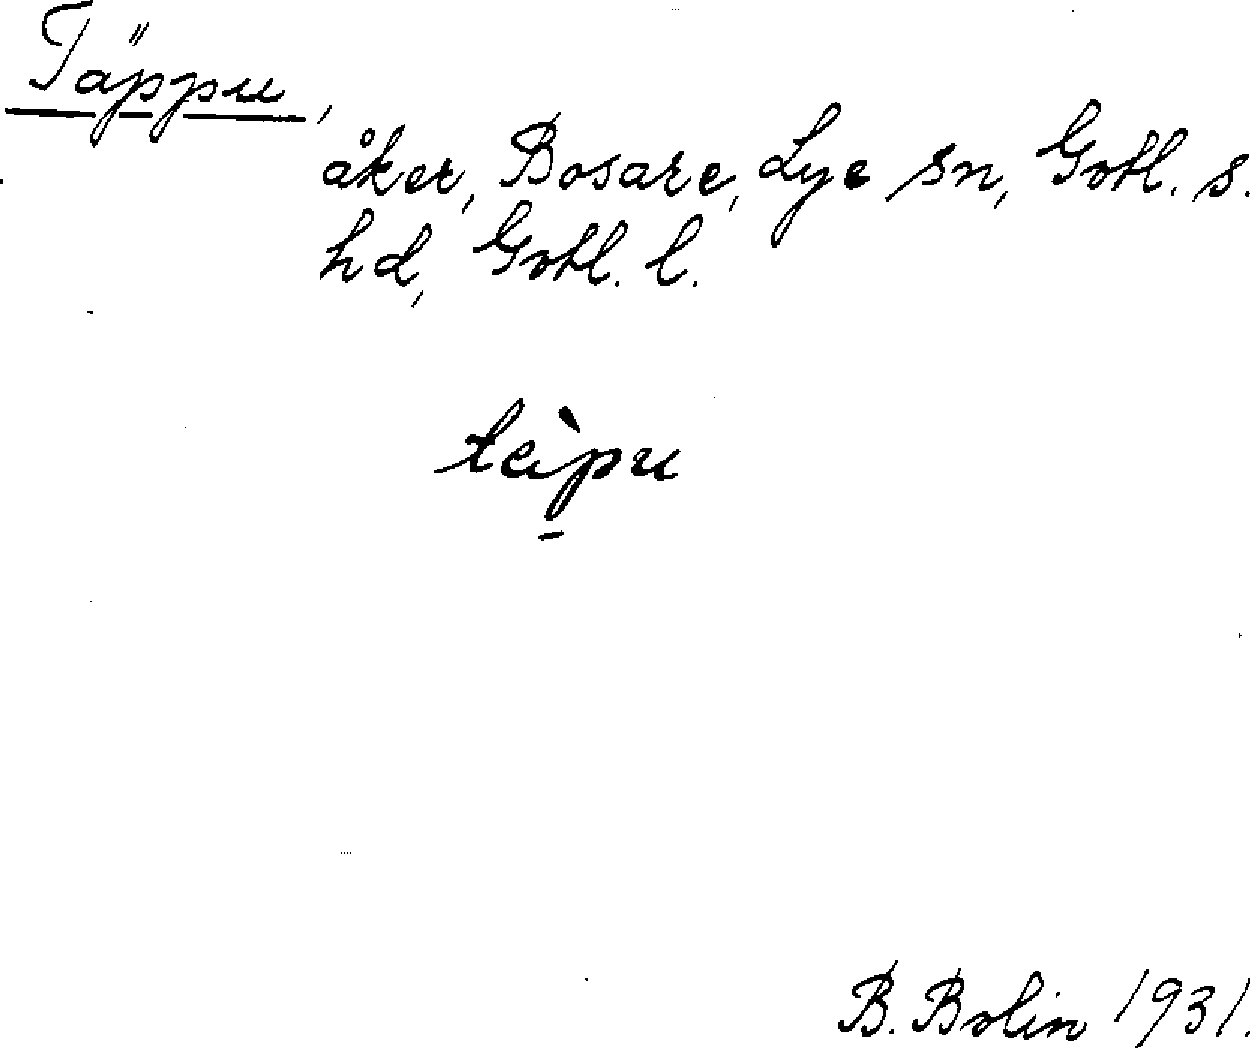 Täppu,
åker, Bosare, Lye sn, Gotl. s.
hd, Gotl. l.
tèpu
B. Bolin 1931.